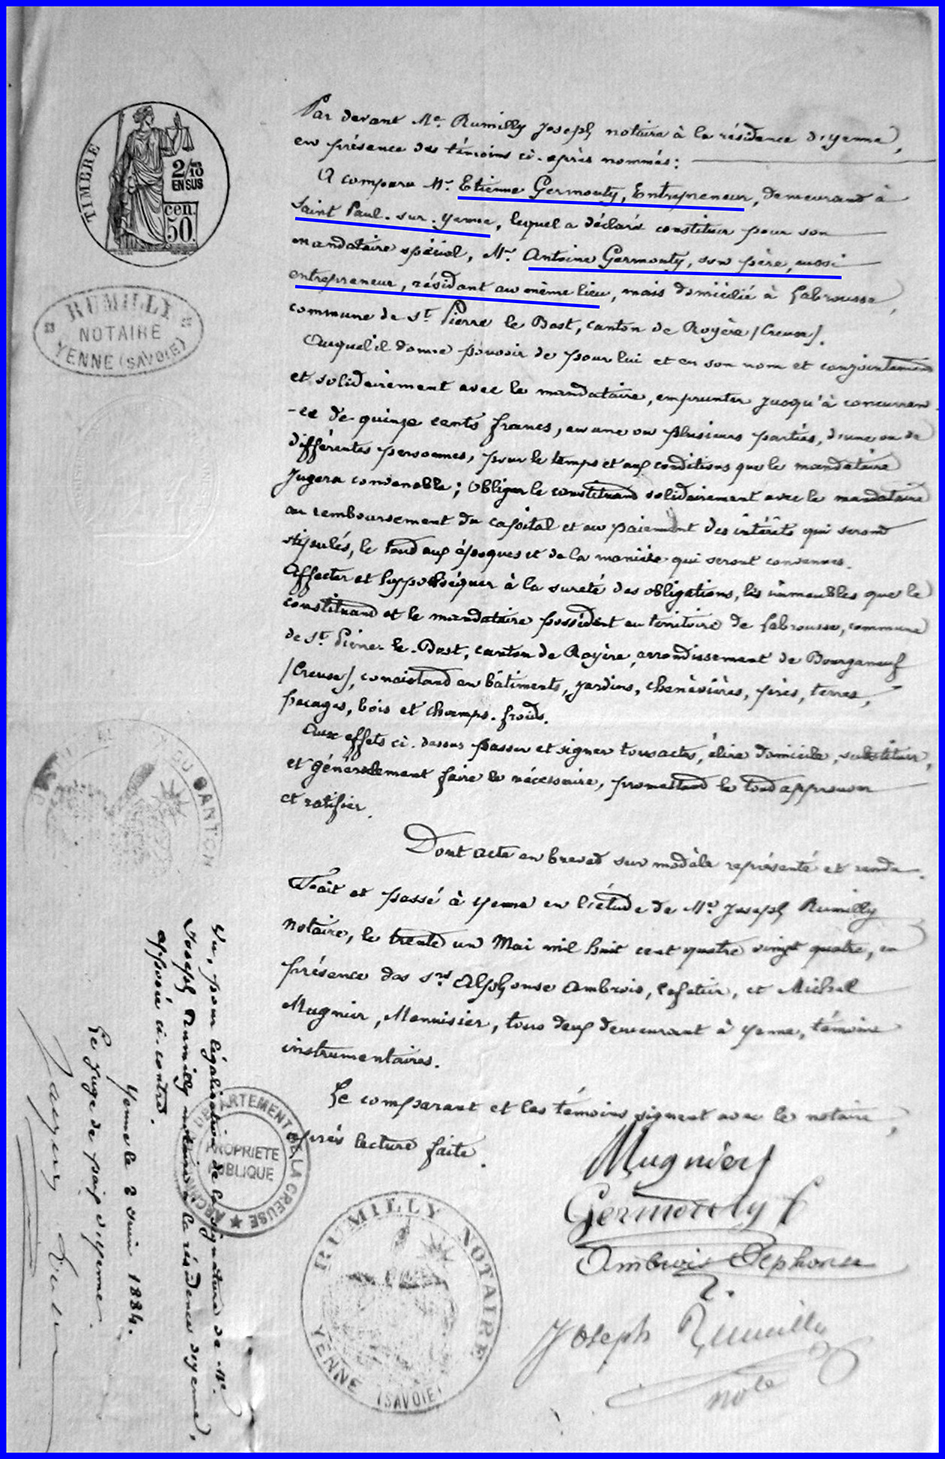 TIMBRE
2/10
EN SUS
cen.
50
RUMILLY
NOTAIRE
YENNE (SAVOIE)
Par devant Me. Rumilly Joseph notaire à la résidence d'yenne,
en présence des témoins ci-après nommés:
A comparu Mr. Etienne Germouty, Entrepreneur, demeurant à
Saint Paul-sur-yenne, lequel a déclaré constituer pour son
mandataire spécial, Mr. Antoine Germouty, son père, aussi
entrepreneur, résidant au même lieu, mais domicilié à Labrousse,
commune de St. Pierre le Bost, canton de Royère (Creuse).
Auquel il donne pouvoir de pour lui et en son nom et conjointement
et solidairement avec le mandataire, emprunter jusqu'à concurren-
-ce de quinze cents francs, en une ou plusieurs parties, d'une ou de
différentes personnes, pour le temps et aux conditions que le mandataire
Jugera convenable; obliger le constituant solidairement avec le mandataire
au remboursement du capital et au paiement des intérêts qui seront
stipulés, le tout aux époques et de la manière qui seront convenues.
Affecter et hypothéquer à la sureté des obligations, les immeubles que le
constituant et le mandataire possèdent au territoire de Labrousse, commune
de St. Pierre le-Bost, canton de Royère, arrondissement de Bourganeuf
(Creuse), consistant en bâtiments, jardins, chenevières, près, terres,
pacages, bois et champs-froids.
Aux effets ci-dessus passer et signer tous actes, élire domicile, substituer,
et généralement faire le nécessaire, promettant le tout approuver
et ratifier.
Dont acte en brevet sur modèle représenté et rendu.
Fait et passé à yenne en l'étude de Me. Joseph Rumilly
notaire, le trente un Mai mil huit cent quatre vingt quatre, en
présence des srs Alphonse Ambrois, cafetier, et Michel
Mugnier, Menuisier, tous deux demeurant à yenne, témoins
instrumentaires.
Le comparant et les témoins signent avec le notaire,
après lecture faite.
Mugnier
Germouty
Ambrois Alphonse
Joseph Rumilly
nore
RUMILLY NOTAIRE
YENNE (SAVOIE)
DU CANTON
ARCHIVES DÉPARTEMENT DE LA CREUSE
PROPRIETE
PUBLIQUE
Vu, pour légalisation de la signature de Me.
Joseph Rumilly notaire à la résidence d'yenne,
apposée ci-contre.
Yenne le 2 Juin 1884.
Le Juge de paix d'yenne.